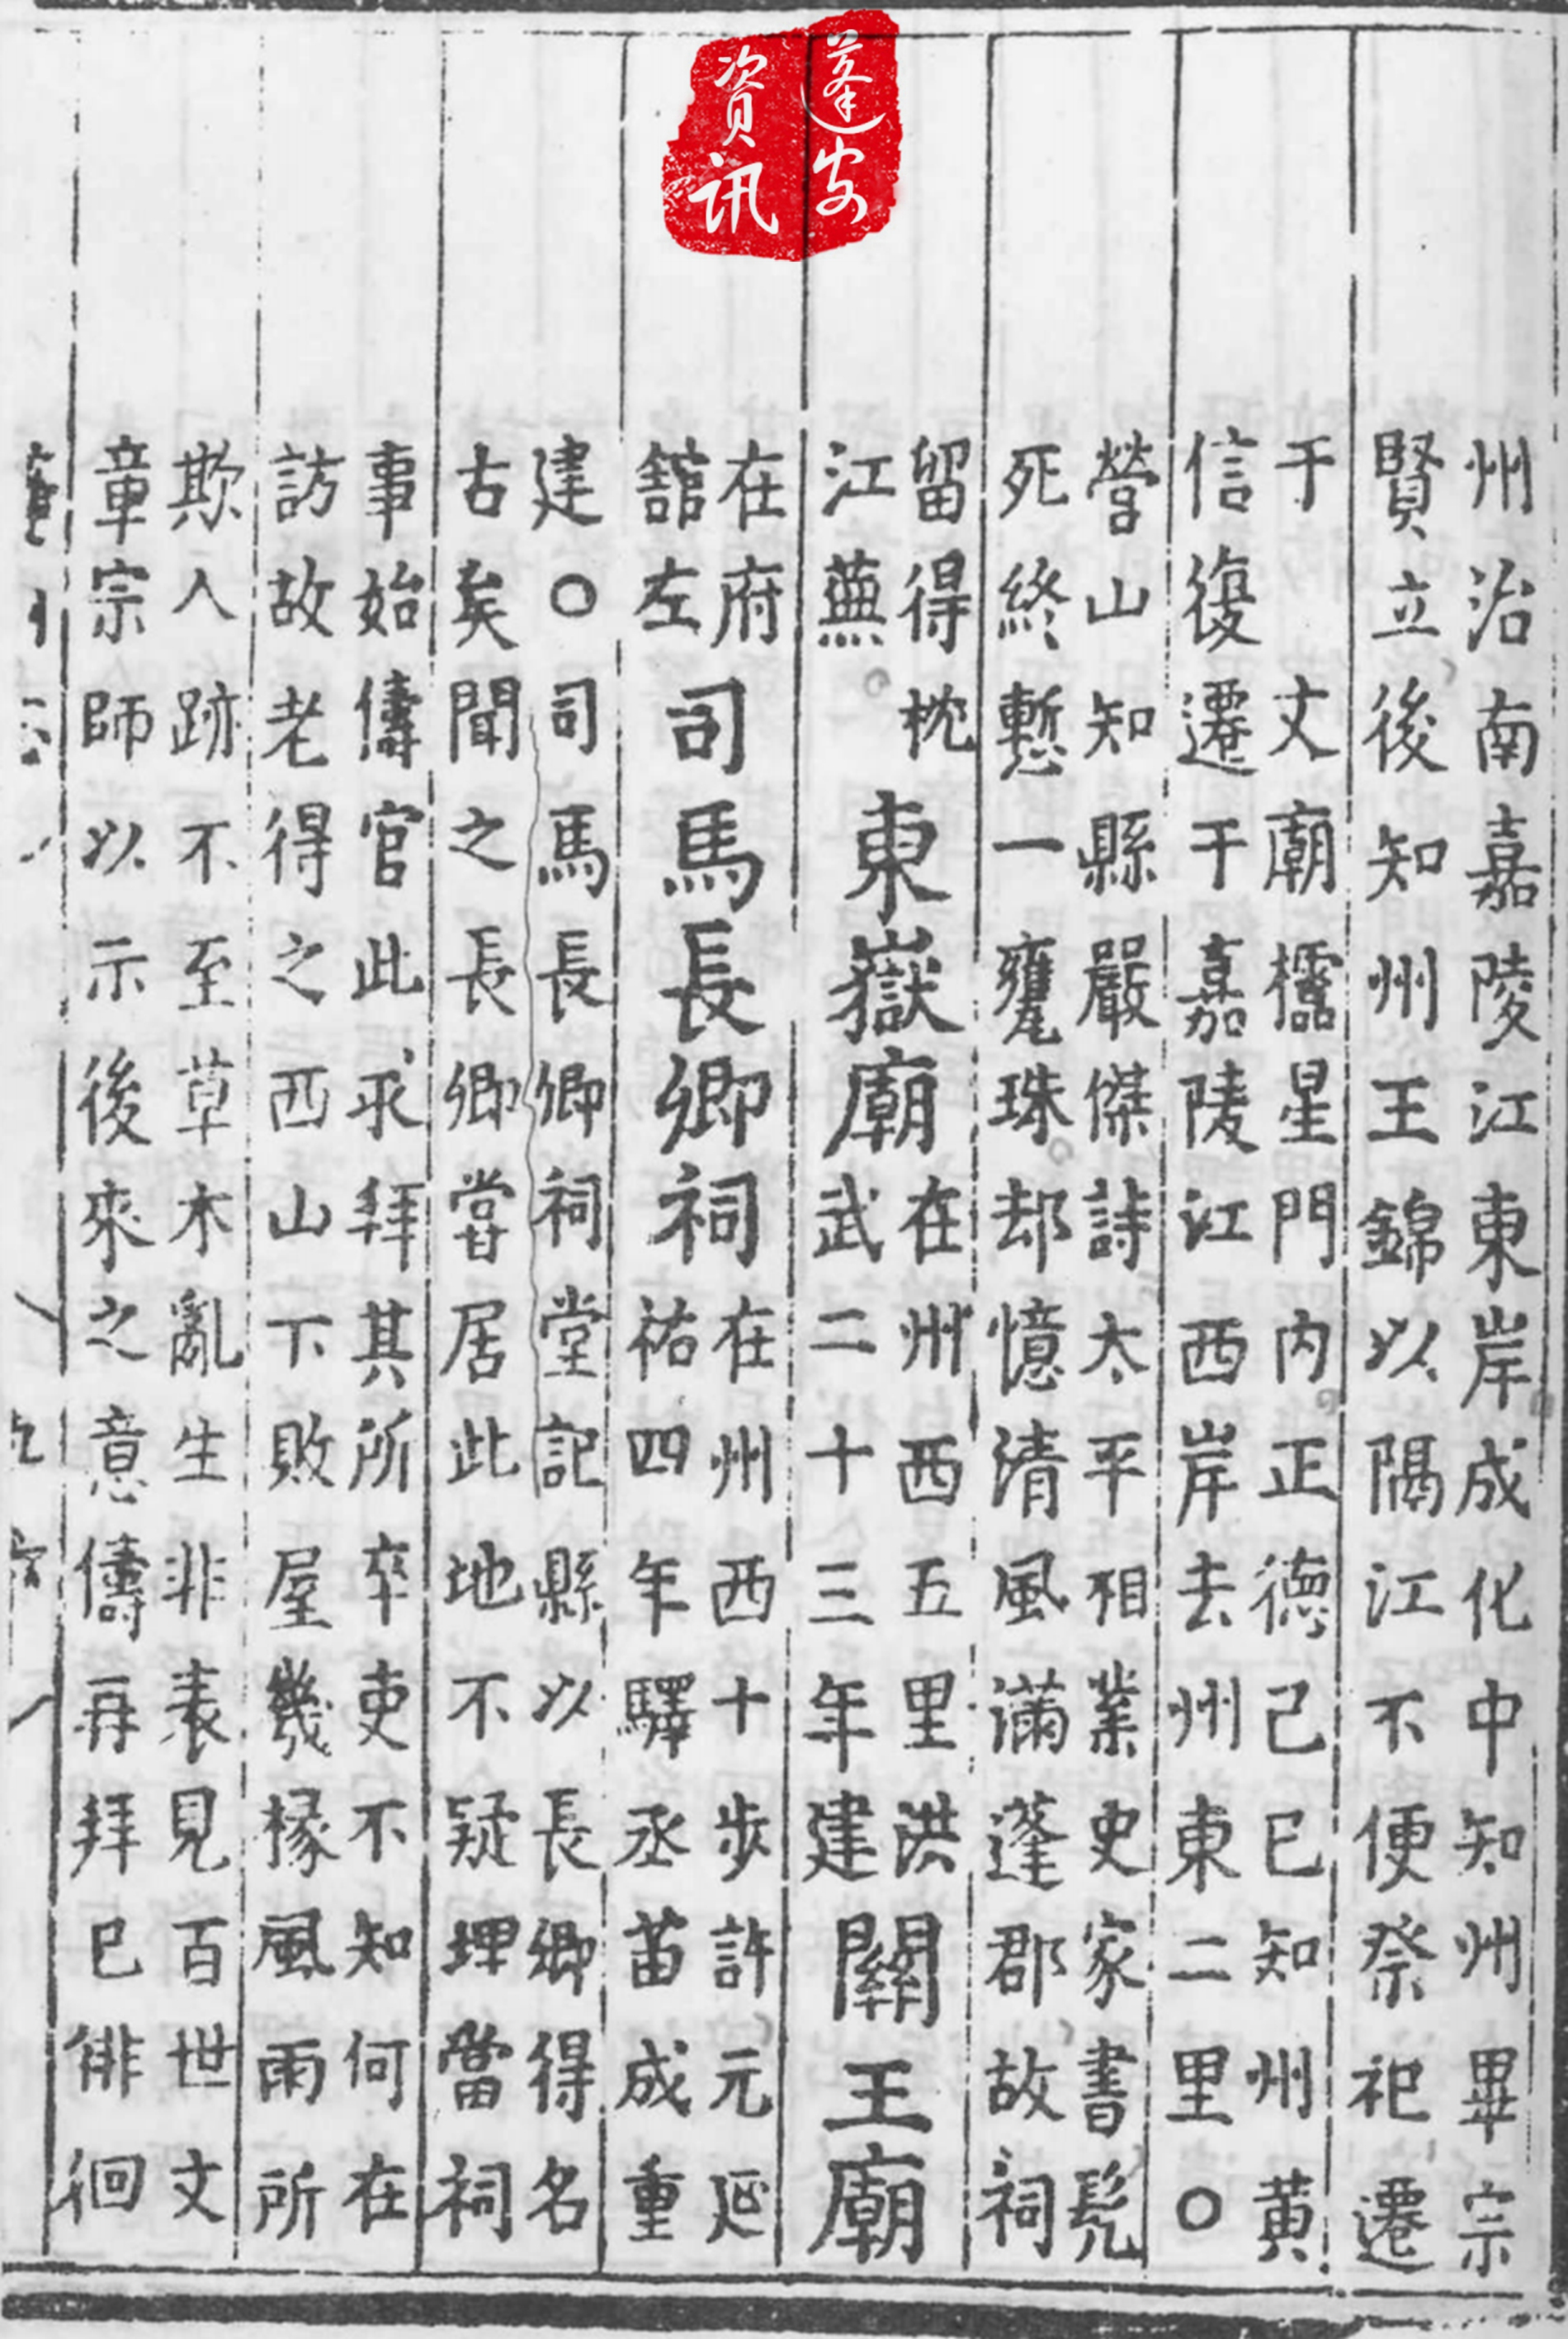 蓬安
资讯
州治南嘉陵江東岸成化中知州畢宗
賢立後知州王錦以隔江不便祭祀遷
于 文廟櫺星門内正德己巳知州黄
信復遷于嘉陵江西岸去州東二里○
營山知縣嚴傑詩太平相業史家書髡
死終慙一甕珠却憶清風滿蓬郡故祠
留得枕
江蕪
東嶽廟
在州西五里洪
武二十三年建
關王廟
在府
舘左
司馬長卿祠
在州西十步許元延
祐四年驛丞苗成重
建○司馬長卿祠堂記縣以長卿得名
古矣聞之長卿嘗居此地不疑埋當祠
事始儔官此求拜其所卒吏不知何在
訪故老得之西山下敗屋幾椽風雨所
欺人跡不至草木亂生非表見百世文
章宗師以示後來之意儔再拜已俳徊